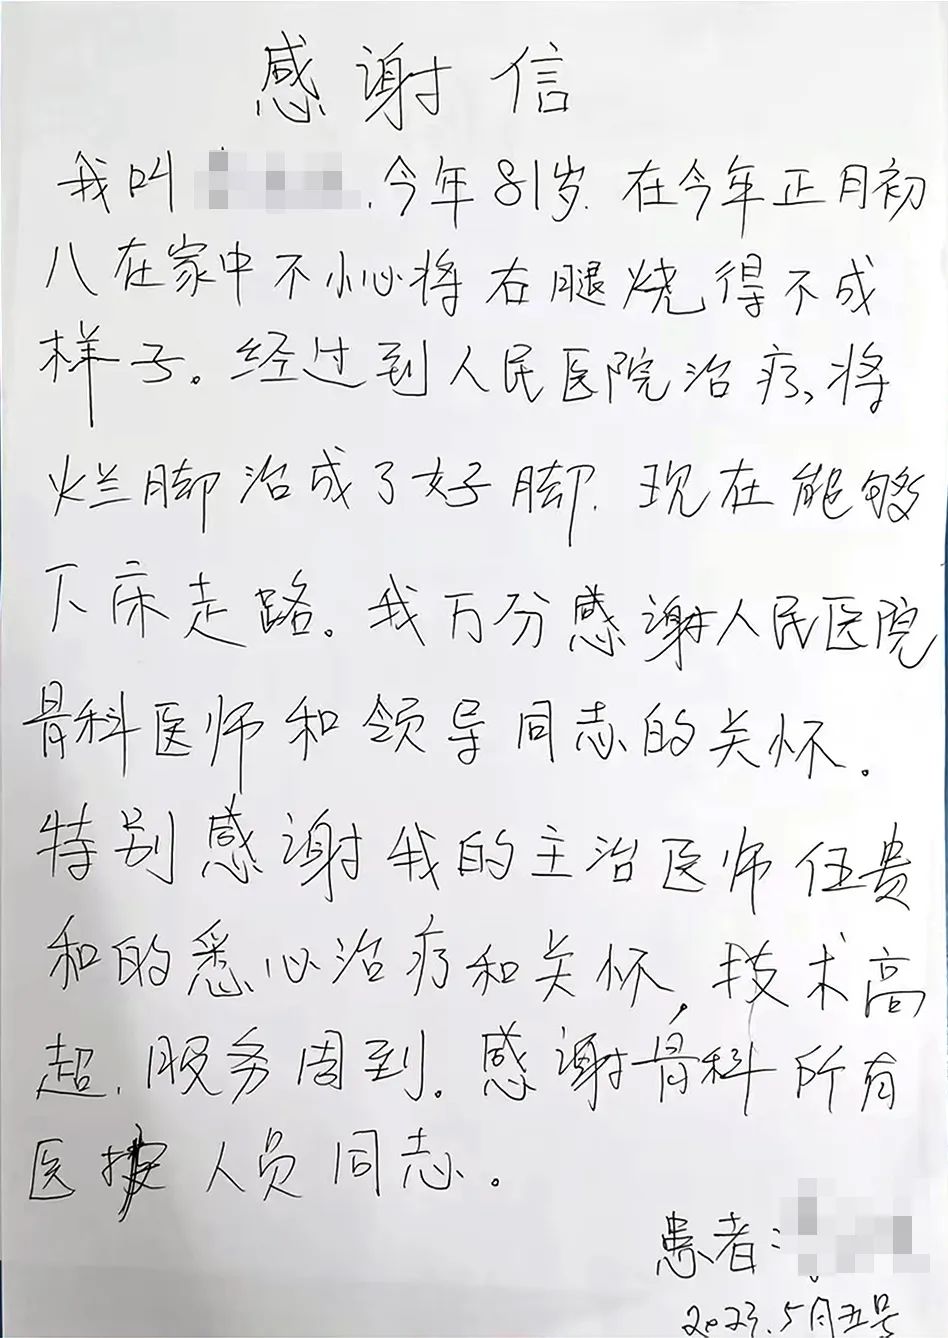 感谢信
我叫 ,今年81岁.在今年正月初
八在家中不小心将右腿烧得不成
样子。经过到人民医院治疗,将
烂脚治成了好脚.现在能够
下床走路。我万分感谢人民医院
骨科医师和领导同志的关怀.
特别感谢我的主治医师任贵
和的悉心治疗和关怀,技术高
超.服务周到.感谢骨科所有
医护人员同志.
患者:
2023.5月五号